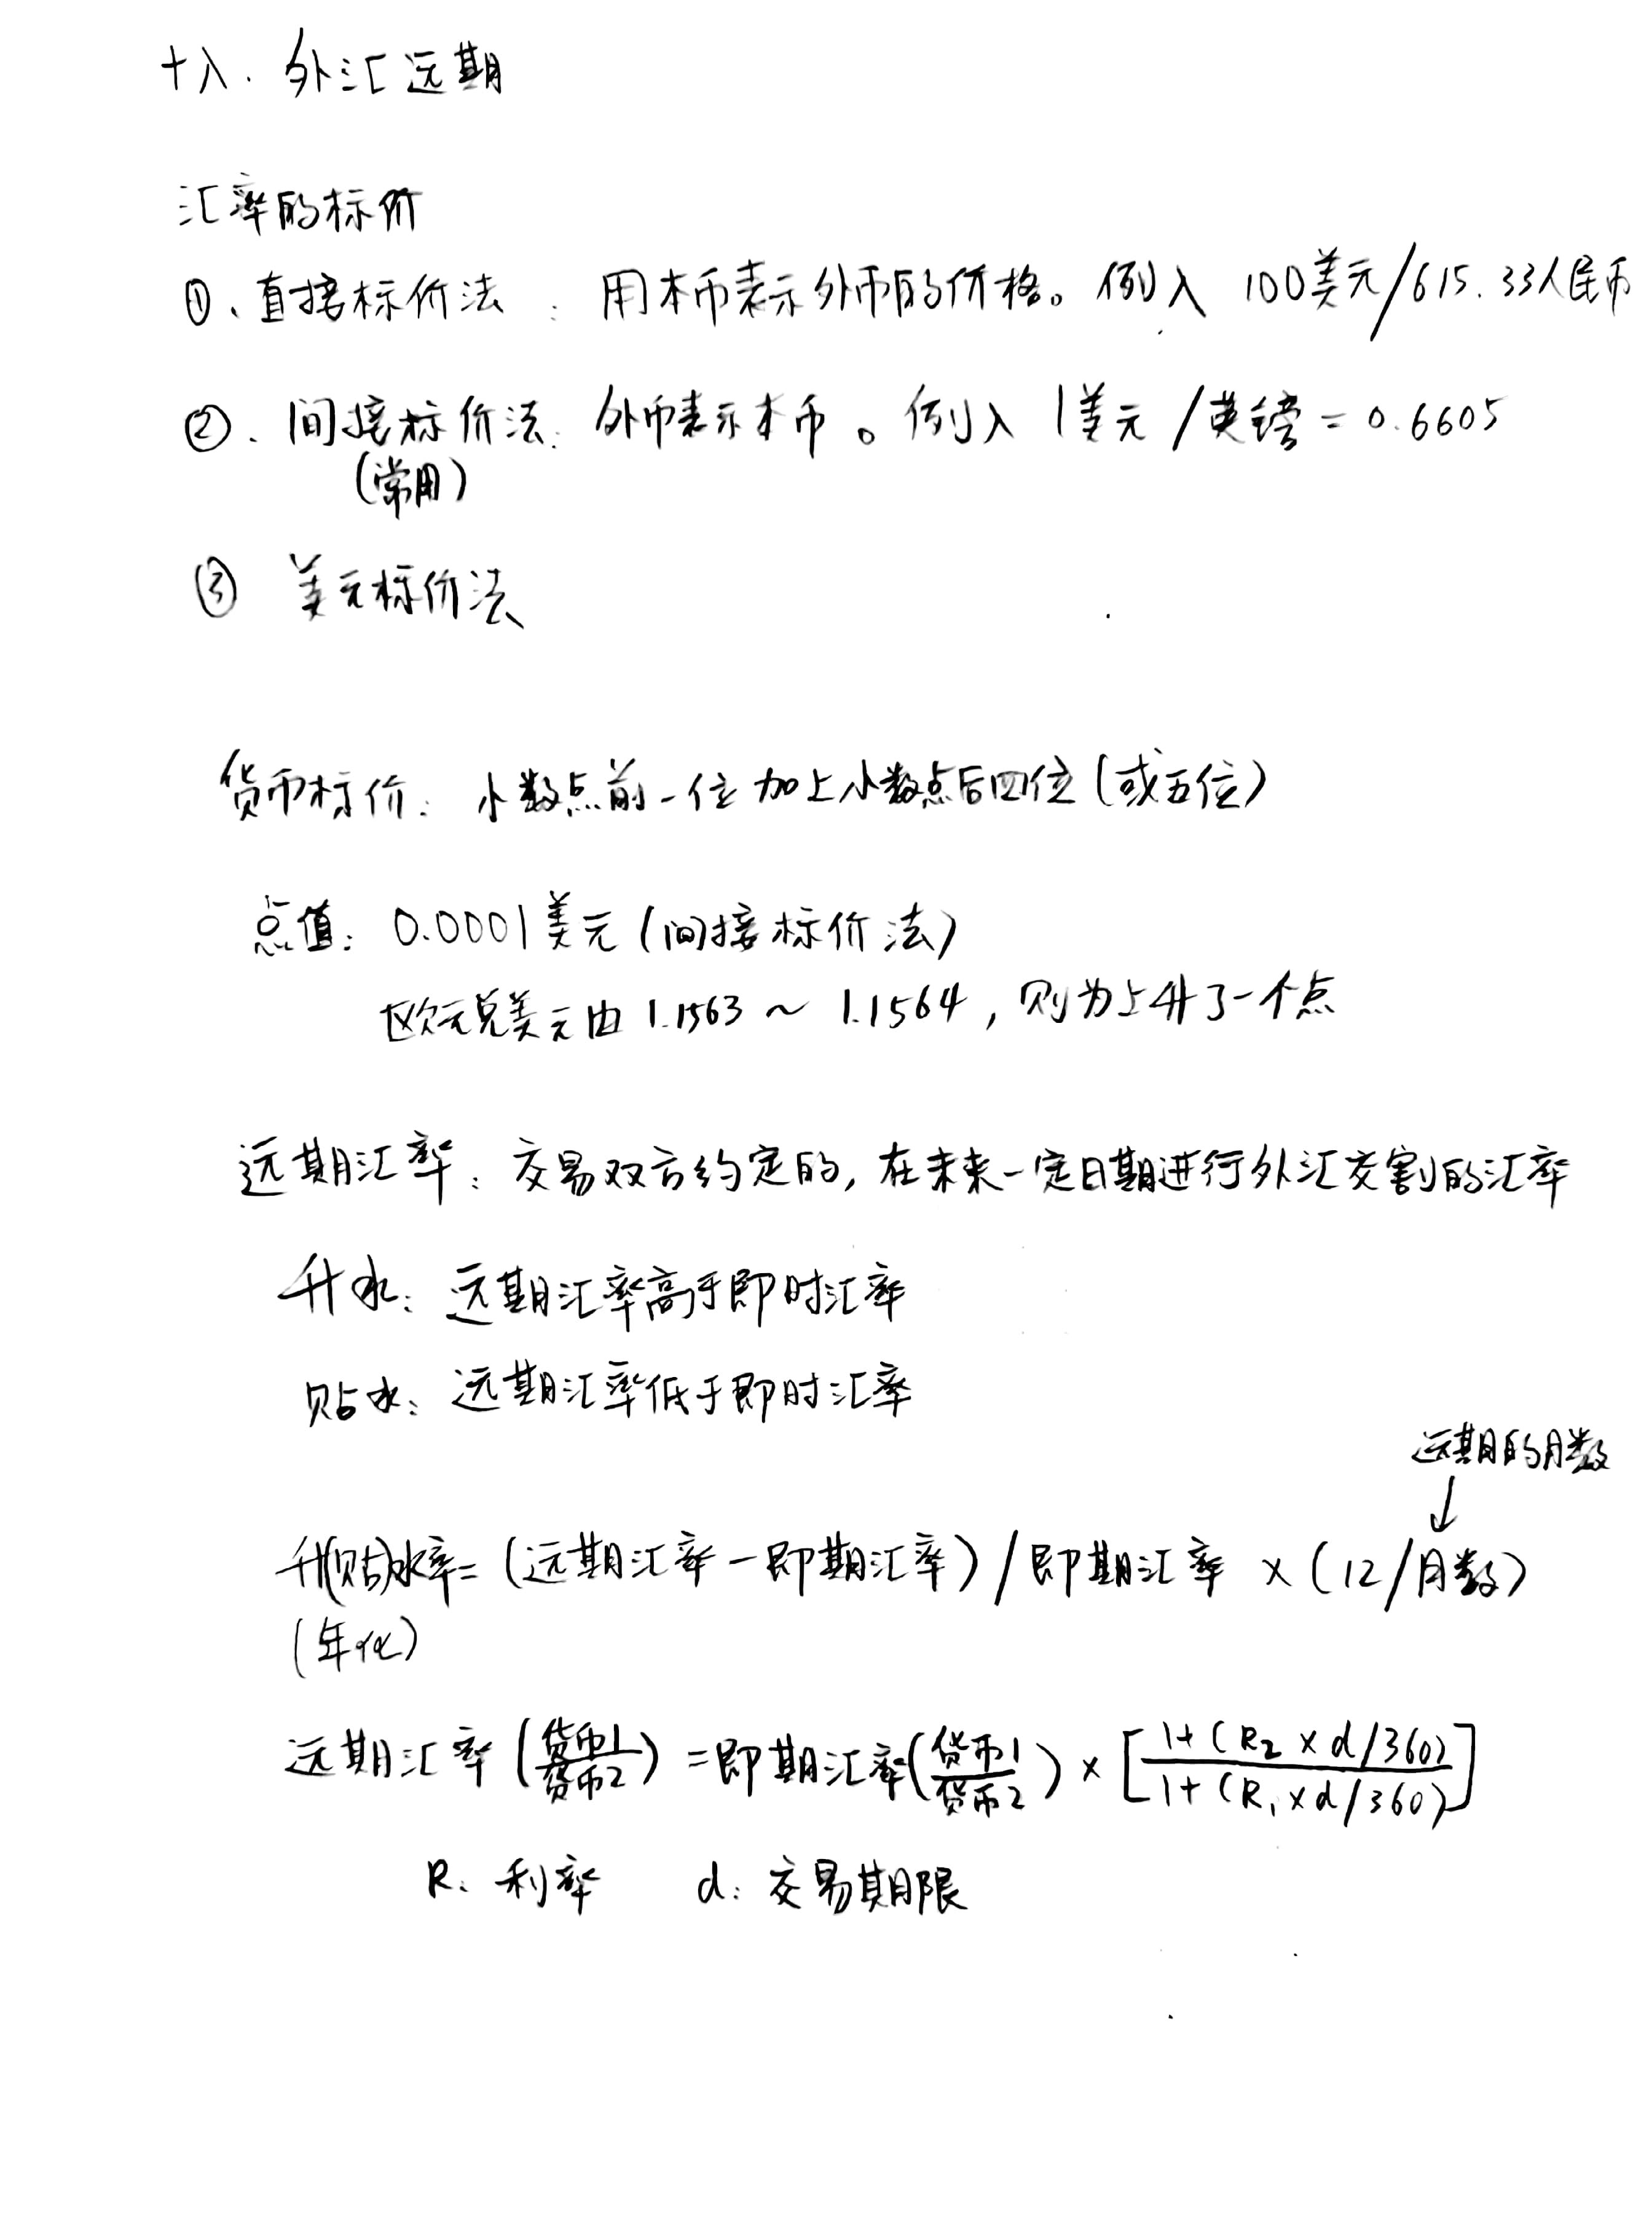 十八. 外汇远期
汇率的标价
①、直接标价法: 用本币表示外币的价格。例入 100美元/615.33人民币
②、间接标价法: 外币表示本币。例入 1美元/英镑=0.6605
(常用)
③ 美元标价法
货币标价: 小数点前一位加上小数点后四位(或五位)
点值: 0.0001美元(间接标价法)
欧元兑美元由 1.1563 ~ 1.1564, 则为上升了一个点
远期汇率: 交易双方约定的, 在未来一定日期进行外汇交割的汇率
升水: 远期汇率高于即时汇率
贴水: 远期汇率低于即时汇率
远期的月数
↓
升(贴)水率=(远期汇率-即期汇率)/即期汇率×(12/月数)
(年化)
远期汇率(货币1/货币2)=即期汇率(货币1/货币2)×[1+(R2×d/360)/1+(R1×d/360)]
R: 利率 d: 交易期限